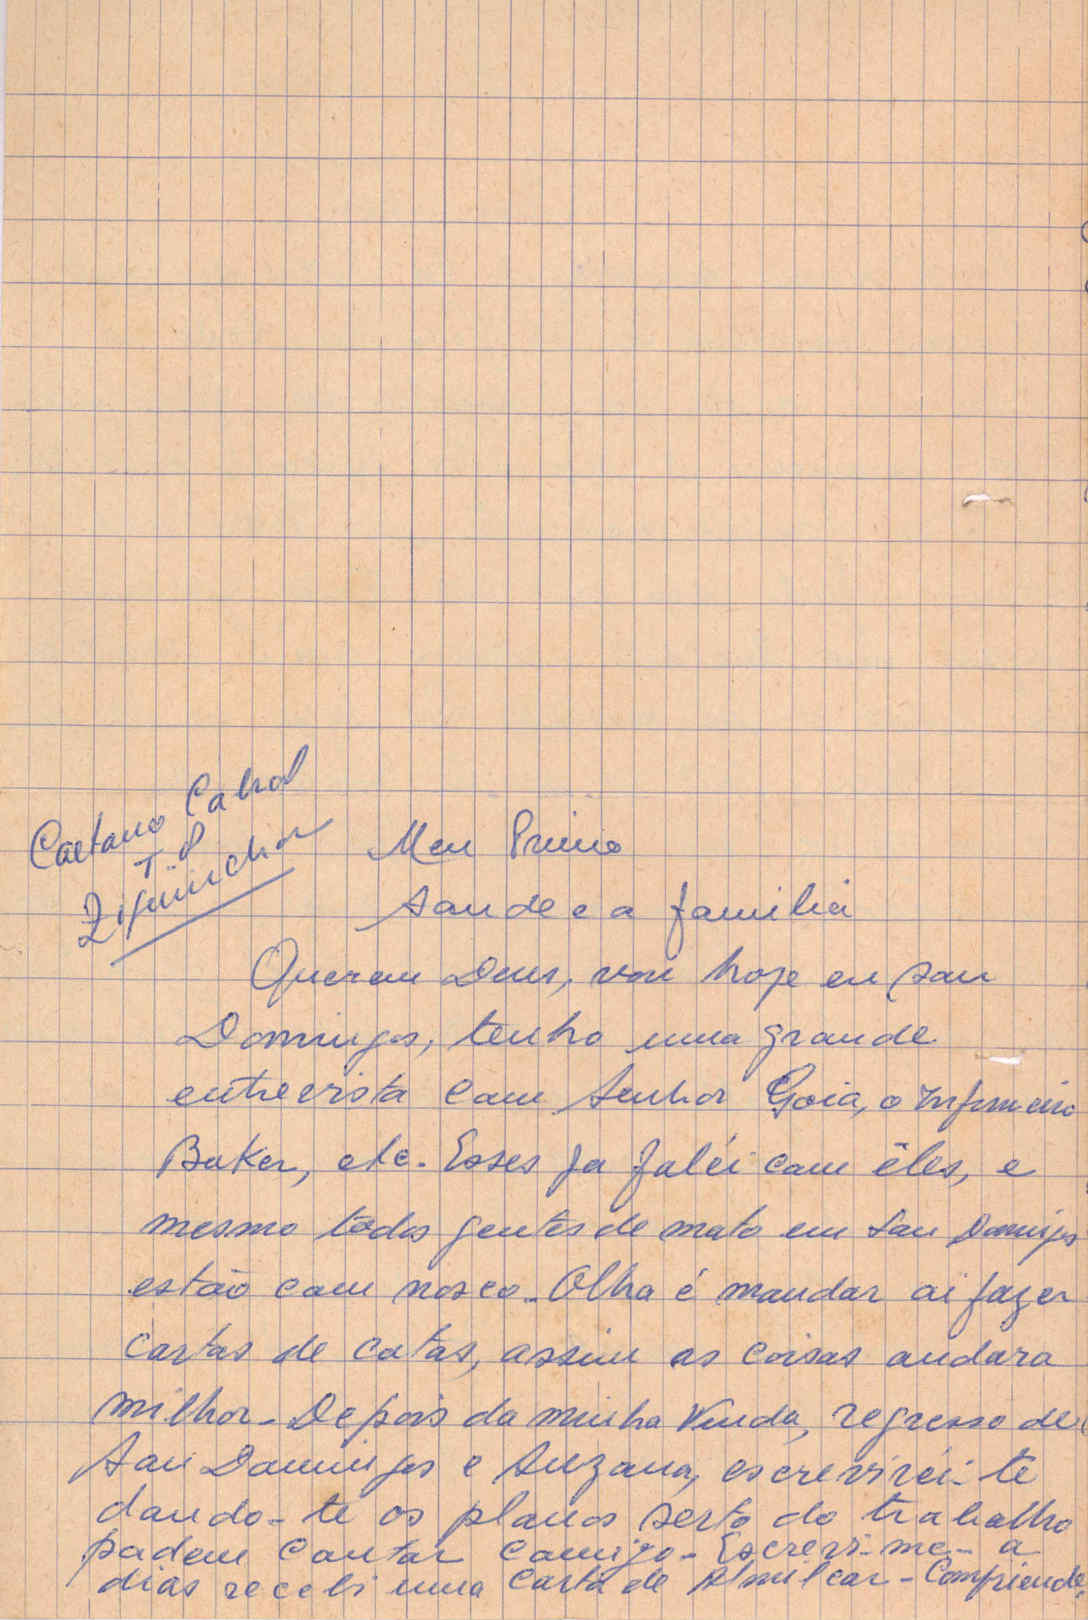 Caetano Cabral
T. P
Ziguinchor
Meu Primo
Saude e a familia
Queram Deus, vou hoje en San
Domingos, tenho uma grande
entrevista com Senhor Goia, o Infermeiro
Baker, etc. Esses ja faléi com êles, e
mesmo todos gentes de mato em San Domingos
estão com nosco. Olha é mandar ai fazer
Cartas de cotas, assim as coisas andara
milhor. Depois da minha Vinda, regresso de
San Domingos e Suzana, escrevirei-te
dando-te os planos serto do trabalho
podem contar comigo. Escrevi-me - a
dias recebi uma Carta de Almilcar - Compriende,